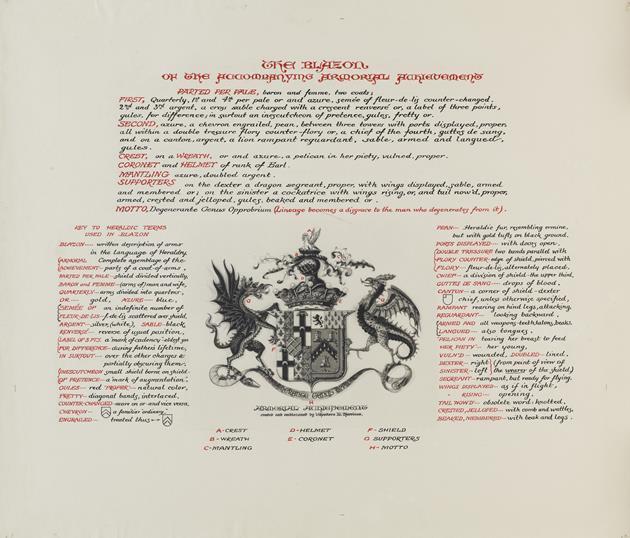 THE BLAZON
OF THE ACCOMPANYING ARMORIAL ACHIEVEMENT
PARTED PER PALE, baron and femme, two coats;
FIRST, Quarterly, 1st and 4th per pale or and azure, semée of fleur-de-lis counter-changed.
2nd and 3rd argent, a cross sable charged with a crescent renversé or, a label of three points,
gules, for difference; in surtout an inescutcheon of pretence, gules, fretty or.
SECOND, azure, a chevron engrailed, pean, between three towers with ports displayed, proper,
all within a double tressure flory counter-flory or, a chief of the fourth, guttes de sang,
and on a canton, argent, a lion rampant reguardant, sable, armed and langued,
gules.
CREST, on a WREATH, or and azure, a pelican in her piety, vulned, proper.
CORONET and HELMET of rank of Earl.
MANTLING azure, doubled argent.
SUPPORTERS on the dexter a dragon segreant, proper, with wings displayed, sable, armed
and membered or; on the sinister a cockatrice with wings rising, or, and tail now'd, proper,
armed, crested and jelloped, gules, beaked and membered or.
MOTTO, Degenerante Genus Opprobrium (Lineage becomes a disgrace to the man who degenerates from it).
KEY TO HERALDIC TERMS
USED IN BLAZON
BLAZON — written description of arms
in the Language of Heraldry.
ARMORIAL Complete assemblage of the
ACHIEVEMENT — parts of a coat-of-arms.
PARTED PER PALE — shield divided vertically.
BARON and FEMME — (arms of) man and wife,
QUARTERLY — arms divided into quarters,
OR — gold, AZURE — blue,
SEMÉE OF an indefinite number of
FLEUR-DE-LIS — f. de lis scattered over shield,
ARGENT — silver, (white), SABLE — black
RENVERSÉ — reverse of usual position,
LABEL OF 3 PTS a mark of cadency
FOR DIFFERENCE — during fathers lifetime,
IN SURTOUT — over the other charges &
partially obscuring them;
INESCUTCHEON small shield borne on shield
OF PRETENCE — a mark of augmentation.
GULES — red PROPER — natural color,
FRETTY — diagonal bands, interlaced,
COUNTER-CHANGED
CHEVRON — a familiar ordinary
ENGRAILED — treated thus
PEAN — Heraldic fur, resembling ermine,
but with gold tufts on black ground.
PORTS DISPLAYED — with doors open,
DOUBLE TRESSURE two bands parallel with
FLORY COUNTER- edge of shield, pierced with
FLORY — fleur-de-lis, alternately placed.
CHIEF — a division of shield - the upper third,
GUTTES DE SANG — drops of blood.
CANTON — a corner of shield - dexter
chief, unless otherwise specified,
RAMPANT rearing on hind legs, attacking,
REGUARDANT — looking backward.
ARMED AND all weapons - teeth, talons, beaks.
LANGUED also tongues,
PELICAN IN tearing her breast to feed
HER PIETY — her young,
VULN'D — wounded, DOUBLED — lined.
DEXTER — right (from point of view of
SINISTER — left the wearer of the shield)
SEGREANT — rampant, but ready for flying.
WINGS DISPLAYED as if in flight,
" RISING — opening.
TAIL NOW'D — obsolete word: knotted,
CRESTED, JELLOPED — with comb and wattles,
BEAKED, MEMBERED — with beak and legs.
ARMORIAL ACHIEVEMENT
A - CREST D - HELMET F - SHIELD
B - WREATH E - CORONET G SUPPORTERS
C - MANTLING H - MOTTO